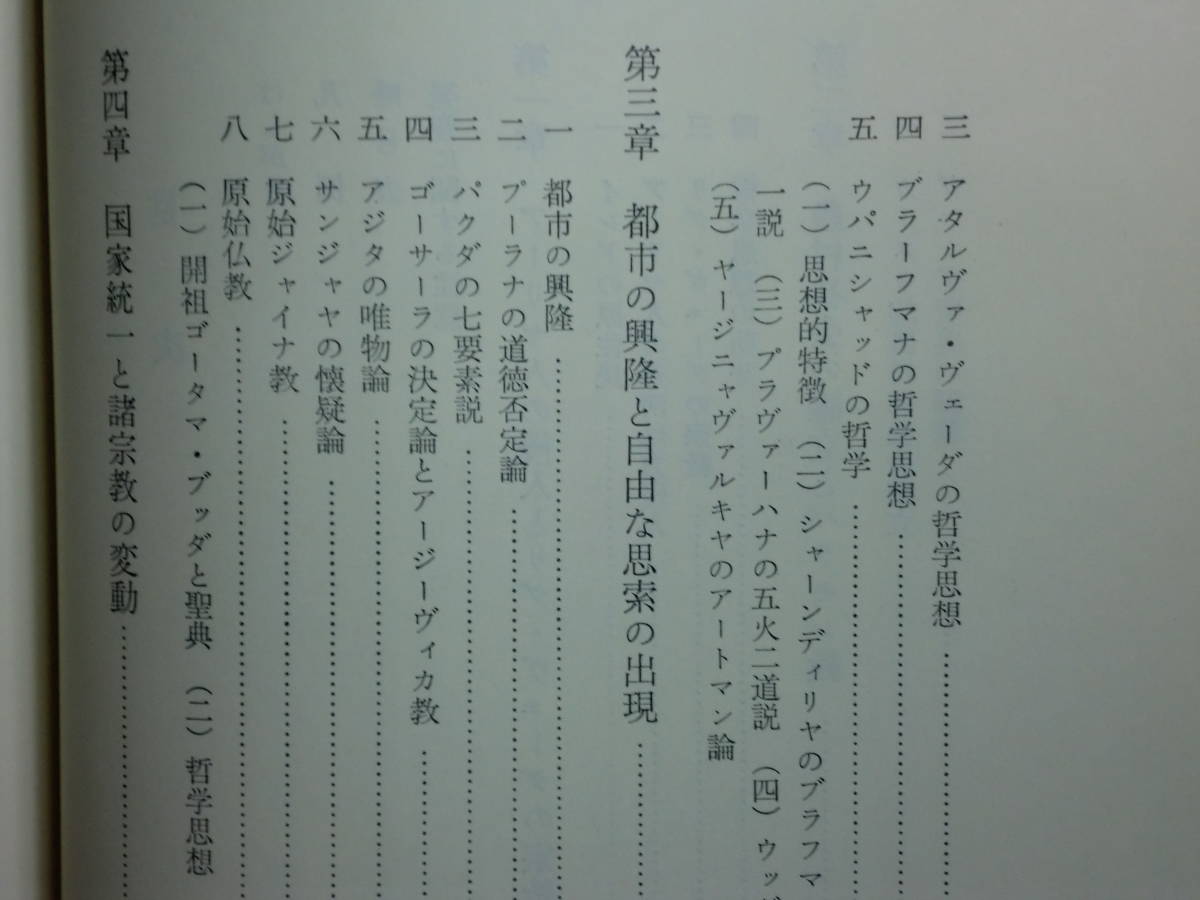 三 アタルヴァ・ヴェーダの哲学思想……………
四 ブラーフマナの哲学思想……………
五 ウパニシャッドの哲学……………
(一) 思想的特徴 (二) シャーンディリヤのブラフマ
一説 (三) プラヴァーハナの五火二道説 (四) ウッダ
(五) ヤージニャヴァルキヤのアートマン論
第三章 都市の興隆と自由な思索の出現……………
一 都市の興隆……………
二 プーラナの道徳否定論……………
三 パクダの七要素説……………
四 ゴーサーラの決定論とアージーヴィカ教……………
五 アジタの唯物論……………
六 サンジャヤの懐疑論……………
七 原始ジャイナ教……………
八 原始仏教……………
(一) 開祖ゴータマ・ブッダと聖典 (二) 哲学思想
第四章 国家統一と諸宗教の変動……………